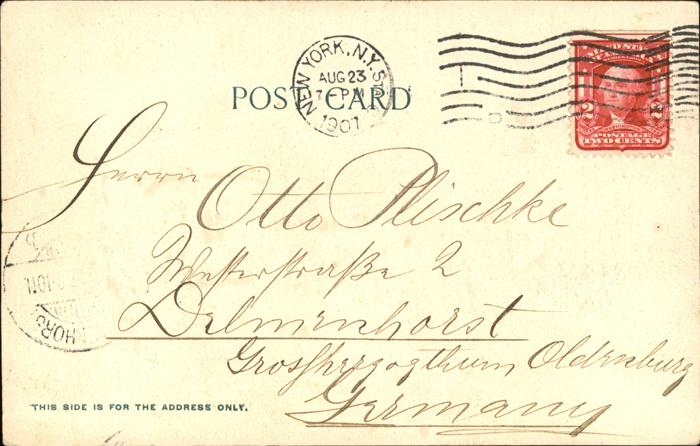 POST CARD
NEW YORK, N.Y. STA
AUG 23
7 - PM
1907
POSTAGE
TWO CENTS
Herrn
Otto Plischke
Westerstraße 2
Delmenhorst
Grossherzogthum Oldenburg
Germany
HORST
THIS SIDE IS FOR THE ADDRESS ONLY.